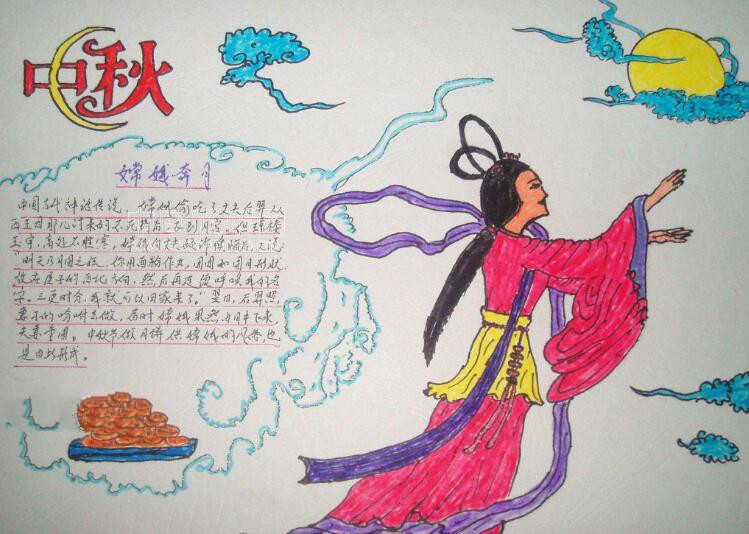 中秋
嫦娥奔月
中国古代神话传说，嫦娥偷吃了丈夫后羿从
西王母那儿讨来的不死药后，飞到月宫。但琼楼
玉宇，高处不胜寒，嫦娥向丈夫倾诉懊悔后，又说：
“明天乃月圆之候，你用面粉作丸，团团如圆月形状，
放在屋子的西北方向，然后再连续呼唤我的名
字。三更时分，我就可以回家来了。”翌日，后羿照
妻子的吩咐去做，届时嫦娥果然由月中下来，
夫妻重圆。中秋节做月饼供嫦娥的风俗，也
是由此形成。